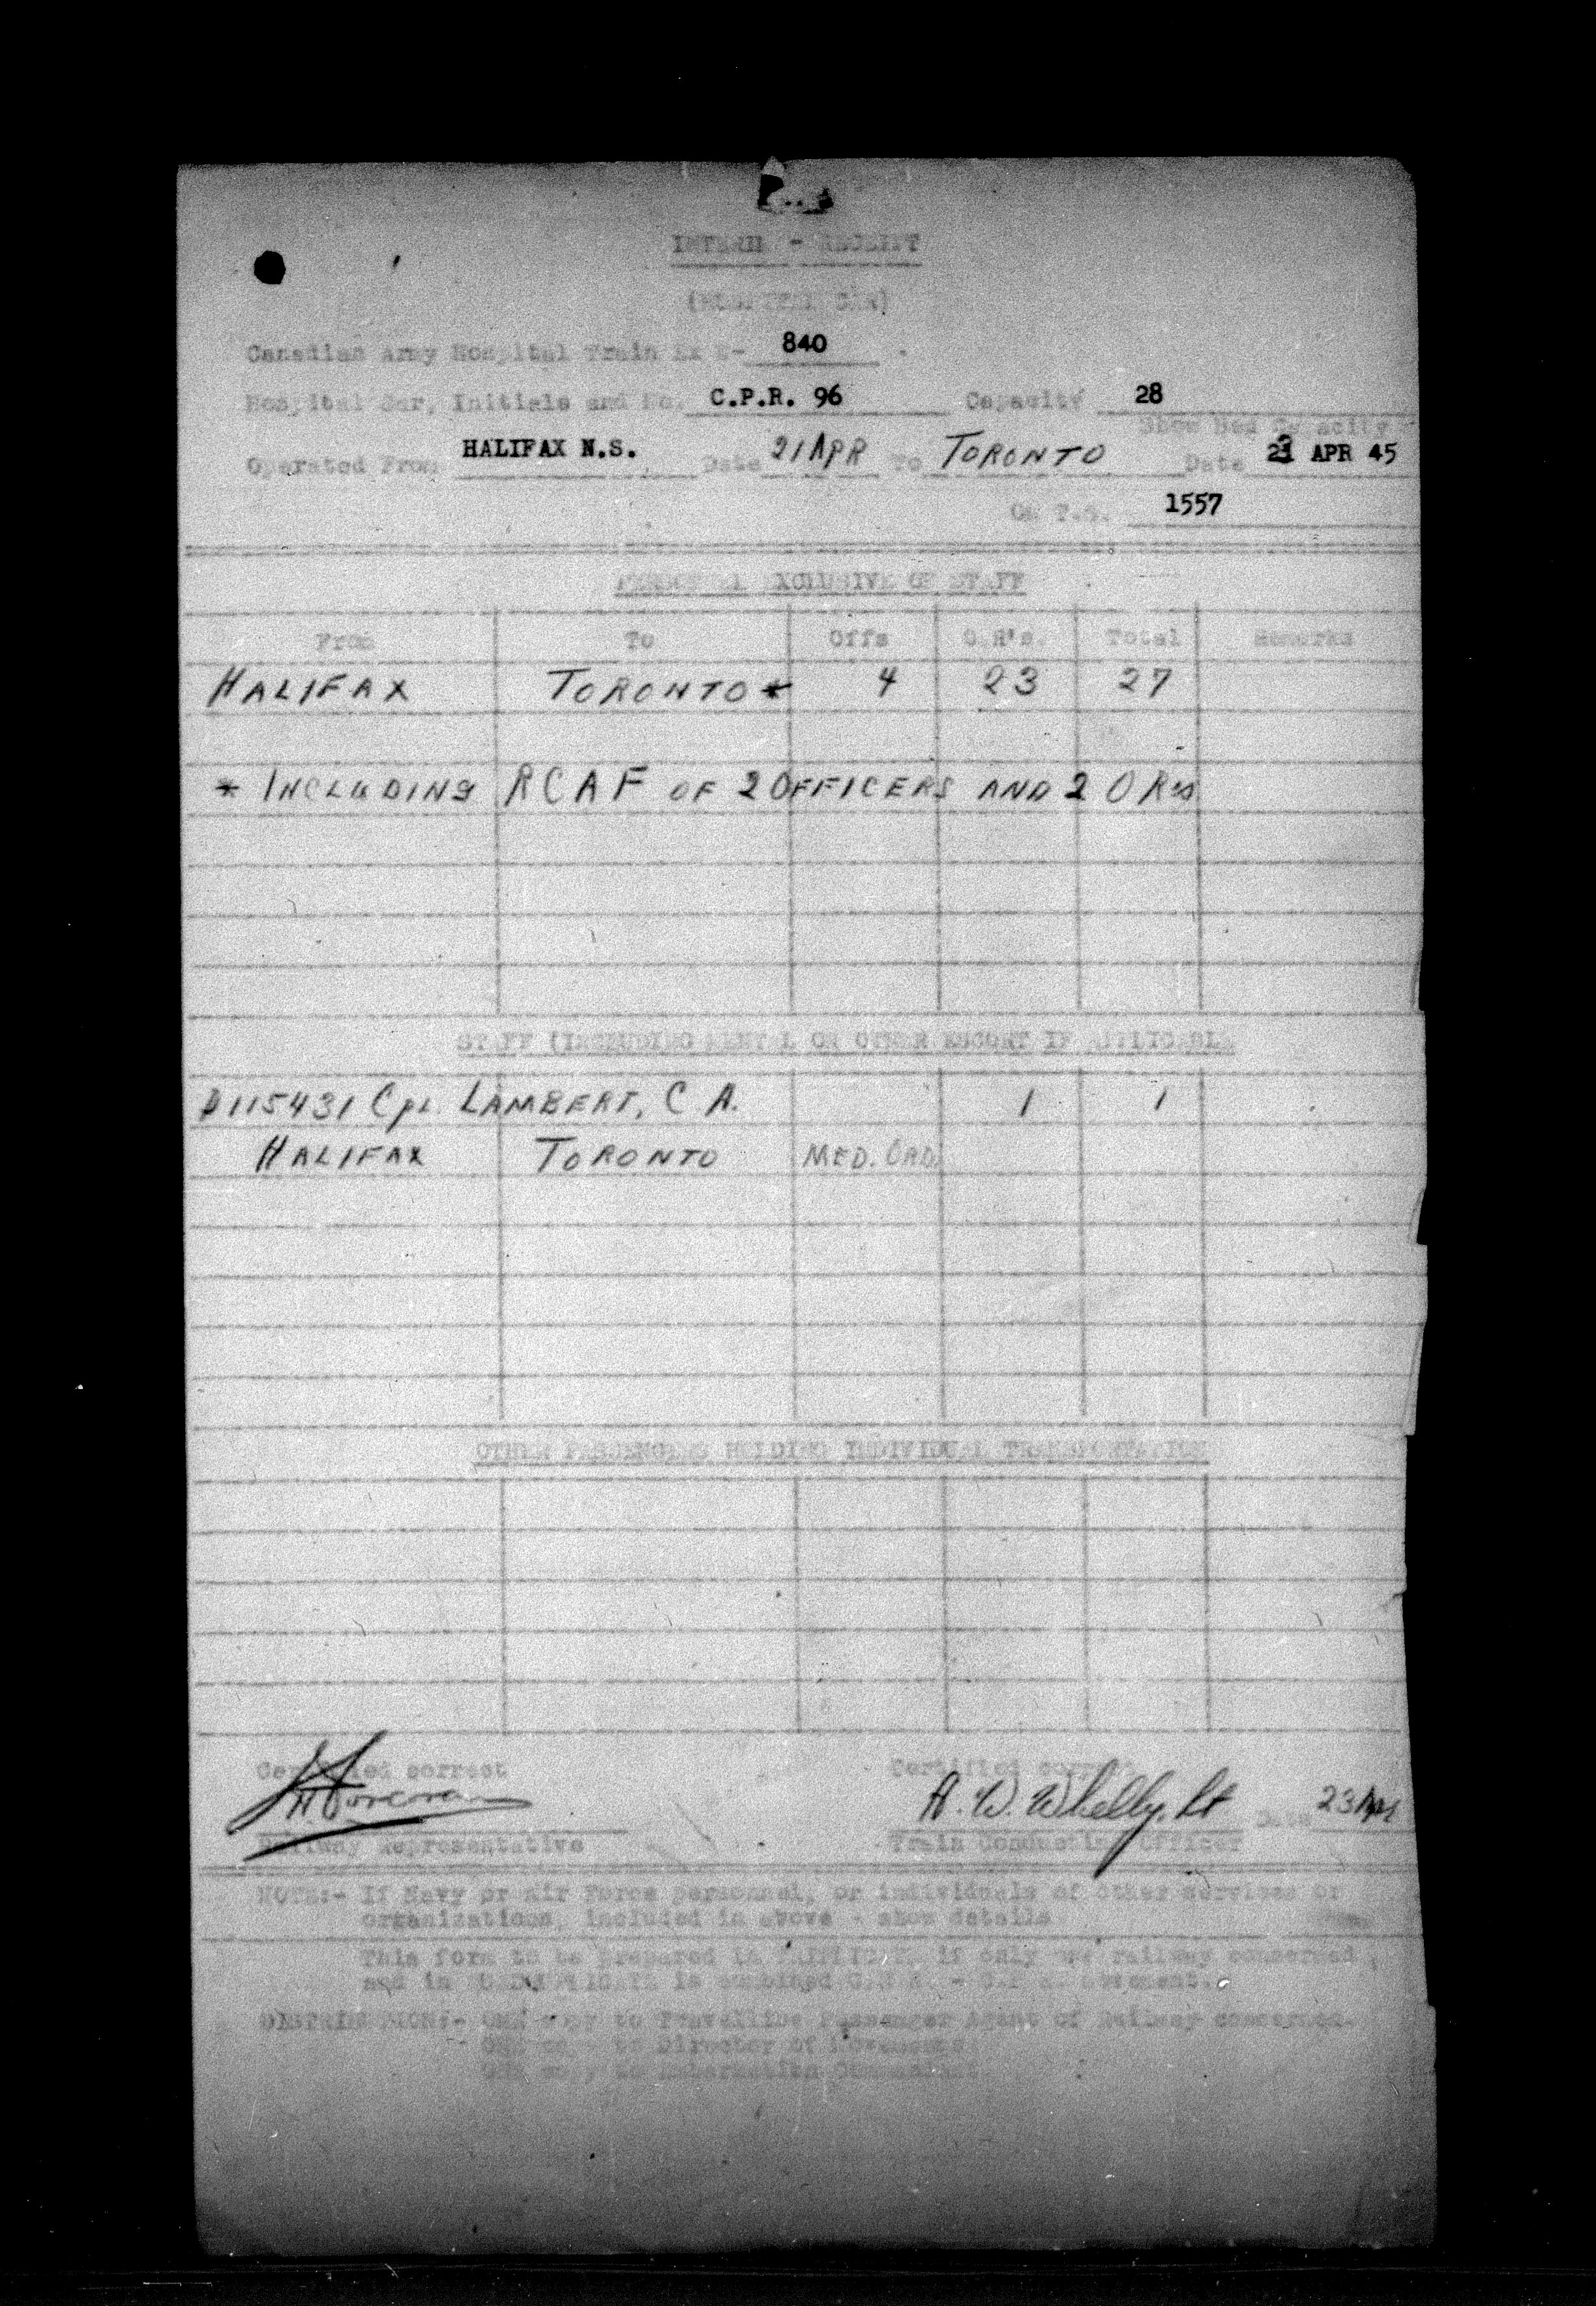 INTERIM - RECEIPT
(HOSPITAL CAR)
Canadian Army Hospital Train Ex W- 840
Hospital Car, Initials and No. C.P.R. 96 Capacity 28
Show Bed Capacity
Operated From HALIFAX N.S. Date 21 APR To TORONTO Date 23 APR 45
On T.S. 1557
PERSONNEL EXCLUSIVE OF STAFF
From To Offs O.R's. Total Remarks
HALIFAX TORONTO * 4 23 27
* INCLUDING RCAF OF 2 OFFICERS AND 2 ORs
STAFF (INCLUDING MENTAL OR OTHER ESCORT IF APPLICABLE
D115431 Cpl. LAMBERT, C A. 1 1
HALIFAX TORONTO MED. ORD.
OTHER PASSENGERS HOLDING INDIVIDUAL TRANSPORTATION
Certified correct Certified correct
A. W. Whelly, Lt Date 23 Apr
Railway Representative Train Conducting Officer
NOTE:- If Navy or Air Force personnel, or individuals of other services or
organizations, included in above - show details
This form to be prepared in if only one railway concerned
and in is combined C.N.R. - C.P.R. movement.
DISTRIBUTION:- ONE copy to Travelling Passenger Agent of Railway concerned.
ONE copy to Director of Movements
ONE copy to